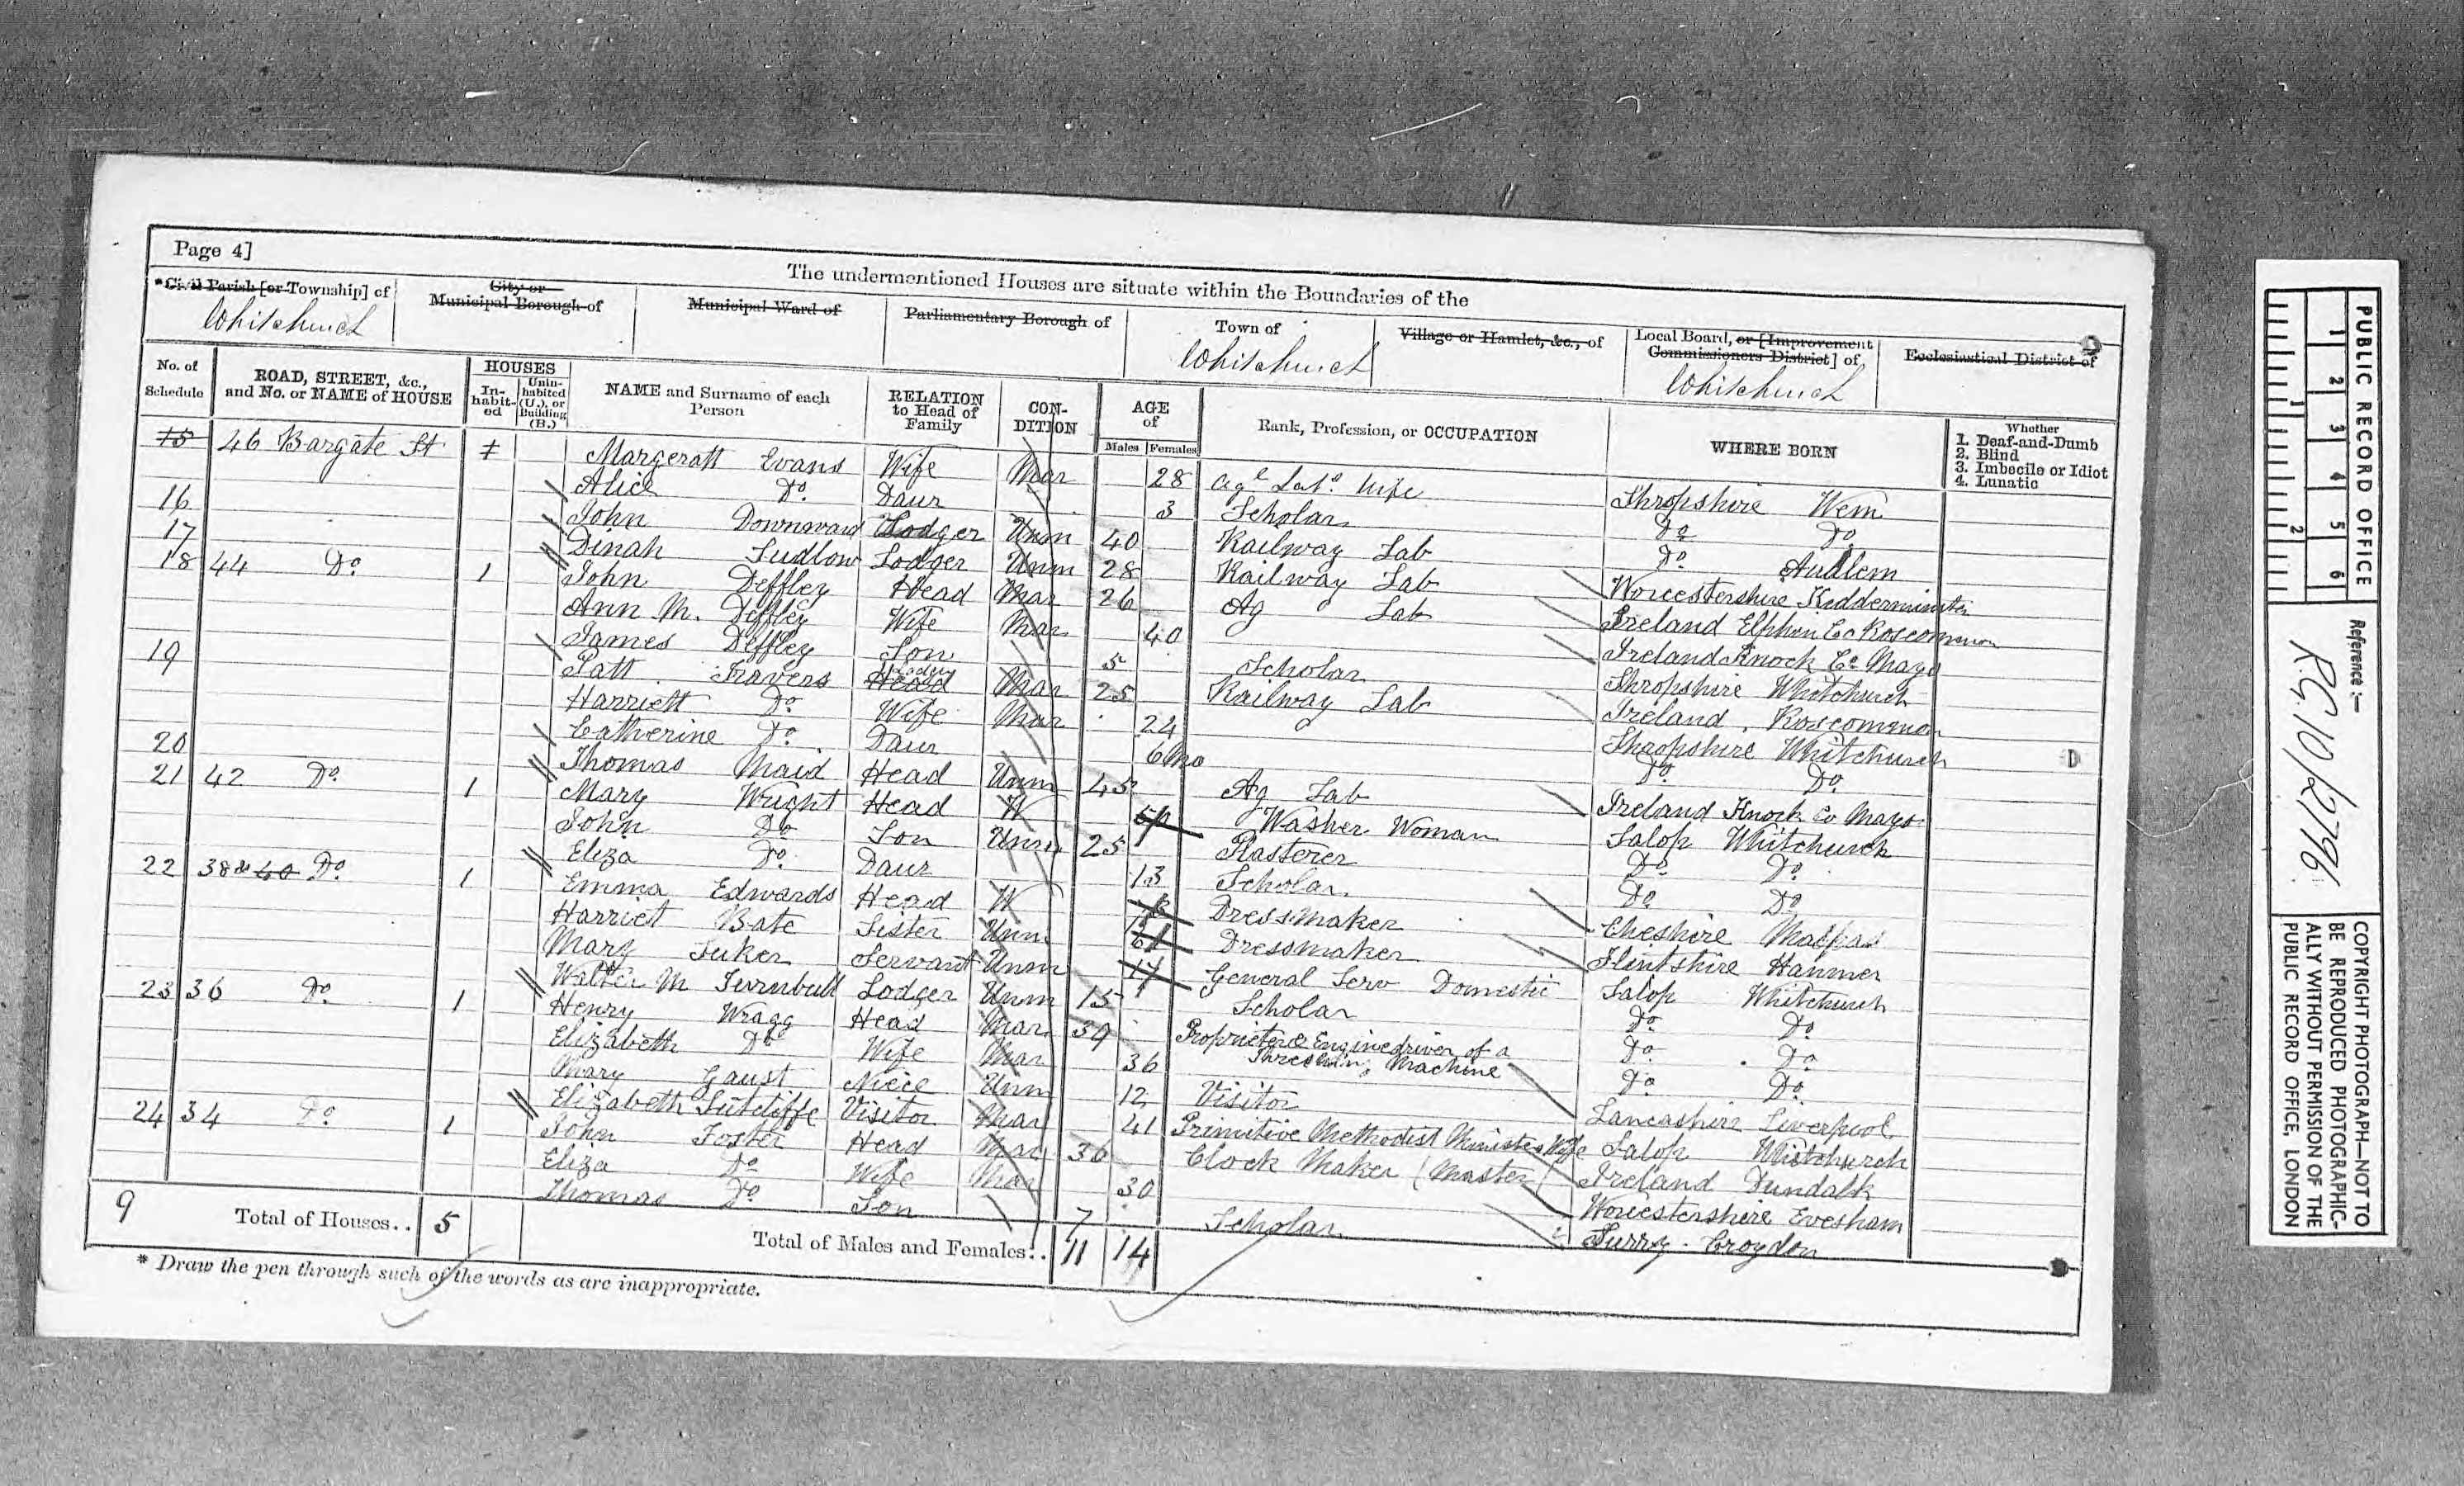 Page 4]
The undermentioned Houses are situate within the Boundaries of the
*Civil Parish [or Township] of
City or Municipal Borough of
Municipal Ward of
Parliamentary Borough of
Town of
Village or Hamlet, &c., of
Local Board, or [Improvement Commissioners District] of,
Ecclesiastical District of
Whitchurch
Whitchurch
Whitchurch
No. of Schedule
ROAD, STREET, &c., and No. or NAME of HOUSE
HOUSES
In-habit-ed
Unin-habited (U.), or Building (B.)
NAME and Surname of each Person
RELATION to Head of Family
CON-DITION
AGE of
Males
Females
Rank, Profession, or OCCUPATION
WHERE BORN
Whether
1. Deaf-and-Dumb
2. Blind
3. Imbecile or Idiot
4. Lunatic
15 46 Bargate St Margeratt Evans Wife Mar 28 Agl Labr Wife Shropshire Wem
Alice Do Daur 3 Scholar Do Do
16 John Downward Lodger Unm 40 Railway Lab Do Audlem
17 Dinah Ludlow Lodger Unm 28 Railway Lab Worcestershire Kidderminster
18 44 Do 1 John Deffley Head Mar 26 Ag Lab Ireland Elphon Co Roscommon
Ann M. Deffley Wife Mar 40 Ireland Knock Co Mayo
James Deffley Son 5 Scholar Shropshire Whitchurch
19 Patt Travers Head Mar 25 Railway Lab Ireland Roscommon
Harriett Do Wife Mar 24 Shropshire Whitchurch
Catherine Do Daur 6 mo Do Do
20 Thomas Maid Head Unm 45 Ag Lab Ireland Knock Co Mayo
21 42 Do 1 Mary Wright Head W Washer Woman Salop Whitchurch
John Do Son Unm 25 Plasterer Do Do
Eliza Do Daur 13 Scholar Do Do
22 38 & 40 Do 1 Emma Edwards Head W Dressmaker Cheshire Malpas
Harriet Bate Sister Unm Dressmaker Flintshire Hanmer
Mary Tuker Servant Unm 17 General Serv Domestic Salop Whitchurch
Walter M Turnbull Lodger Unm 15 Scholar Do Do
23 36 Do 1 Henry Wragg Head Mar 39 Proprietor & Enginedriver of a Threshing Machine Do Do
Elizabeth Do Wife Mar 36 Do Do
Mary Gaust Niece Unm 12 Visitor Lancashire Liverpool
Elizabeth Sutcliffe Visitor Mar 41 Primitive Methodist Ministers Wife Salop Whitchurch
24 34 Do 1 John Foster Head Mar 36 Clock Maker (Master) Ireland Dundalk
Eliza Do Wife Mar 30 Worcestershire Evesham
Thomas Do Son 7 Scholar Surry Croydon
9 Total of Houses.. 5 Total of Males and Females.. 11 14
* Draw the pen through such of the words as are inappropriate.
D
PUBLIC RECORD OFFICE
1 2 3 4 5 6
1 2
Reference :-
RG 10/2796
COPYRIGHT PHOTOGRAPH—NOT TO BE REPRODUCED PHOTOGRAPHIC-ALLY WITHOUT PERMISSION OF THE PUBLIC RECORD OFFICE, LONDON